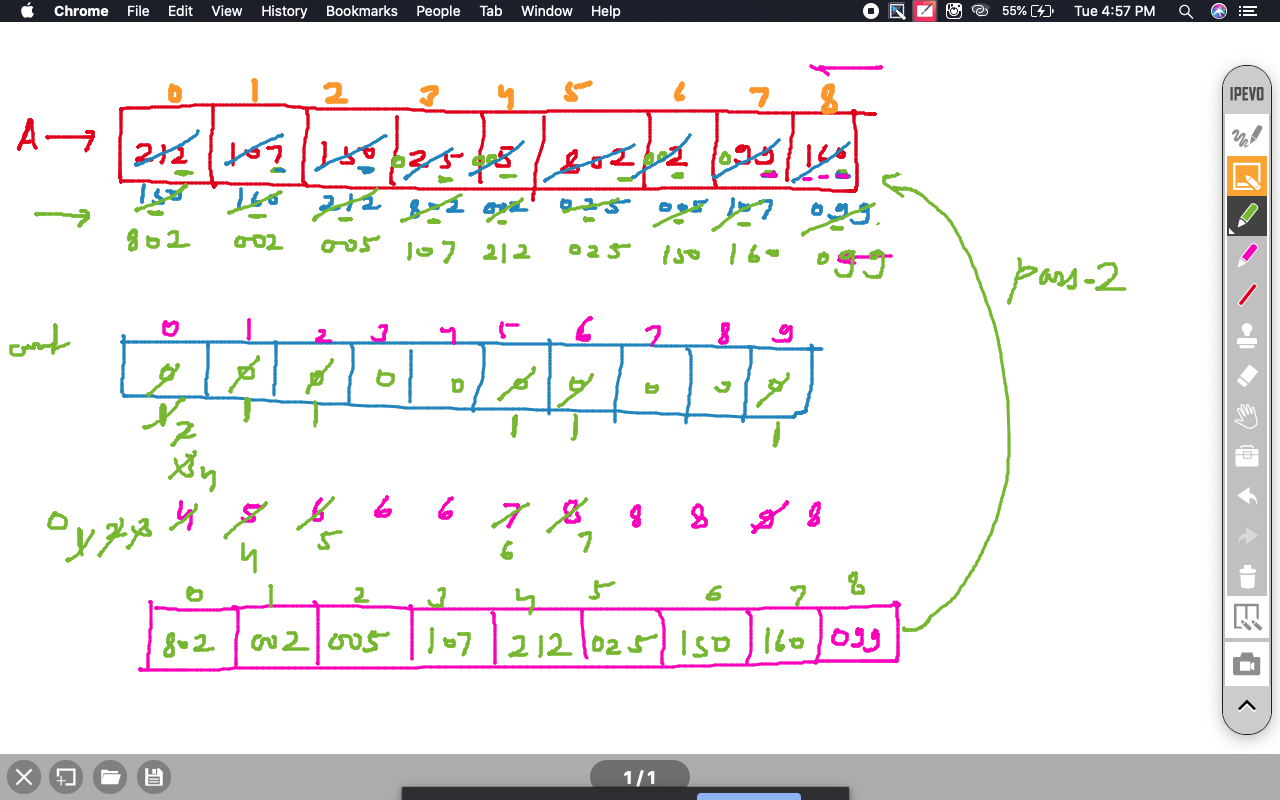 Chrome File Edit View History Bookmarks People Tab Window Help 55% Tue 4:57 PM
IPEVO
0 1 2 3 4 5 6 7 8
A → 212 107 150 025 005 802 002 099 160
150 160 212 802 002 025 005 107 099
802 002 005 107 212 025 150 160 099
Pass-2
0 1 2 3 4 5 6 7 8 9
count 0 0 0 0 0 0 0 0 0 0
1 1 1 1 1 1
2
3 4
0 1 2 3 4 5 6 6 6 7 8 8 8 9 8
4 5 6 7
0 1 2 3 4 5 6 7 8
802 002 005 107 212 025 150 160 099
1/1